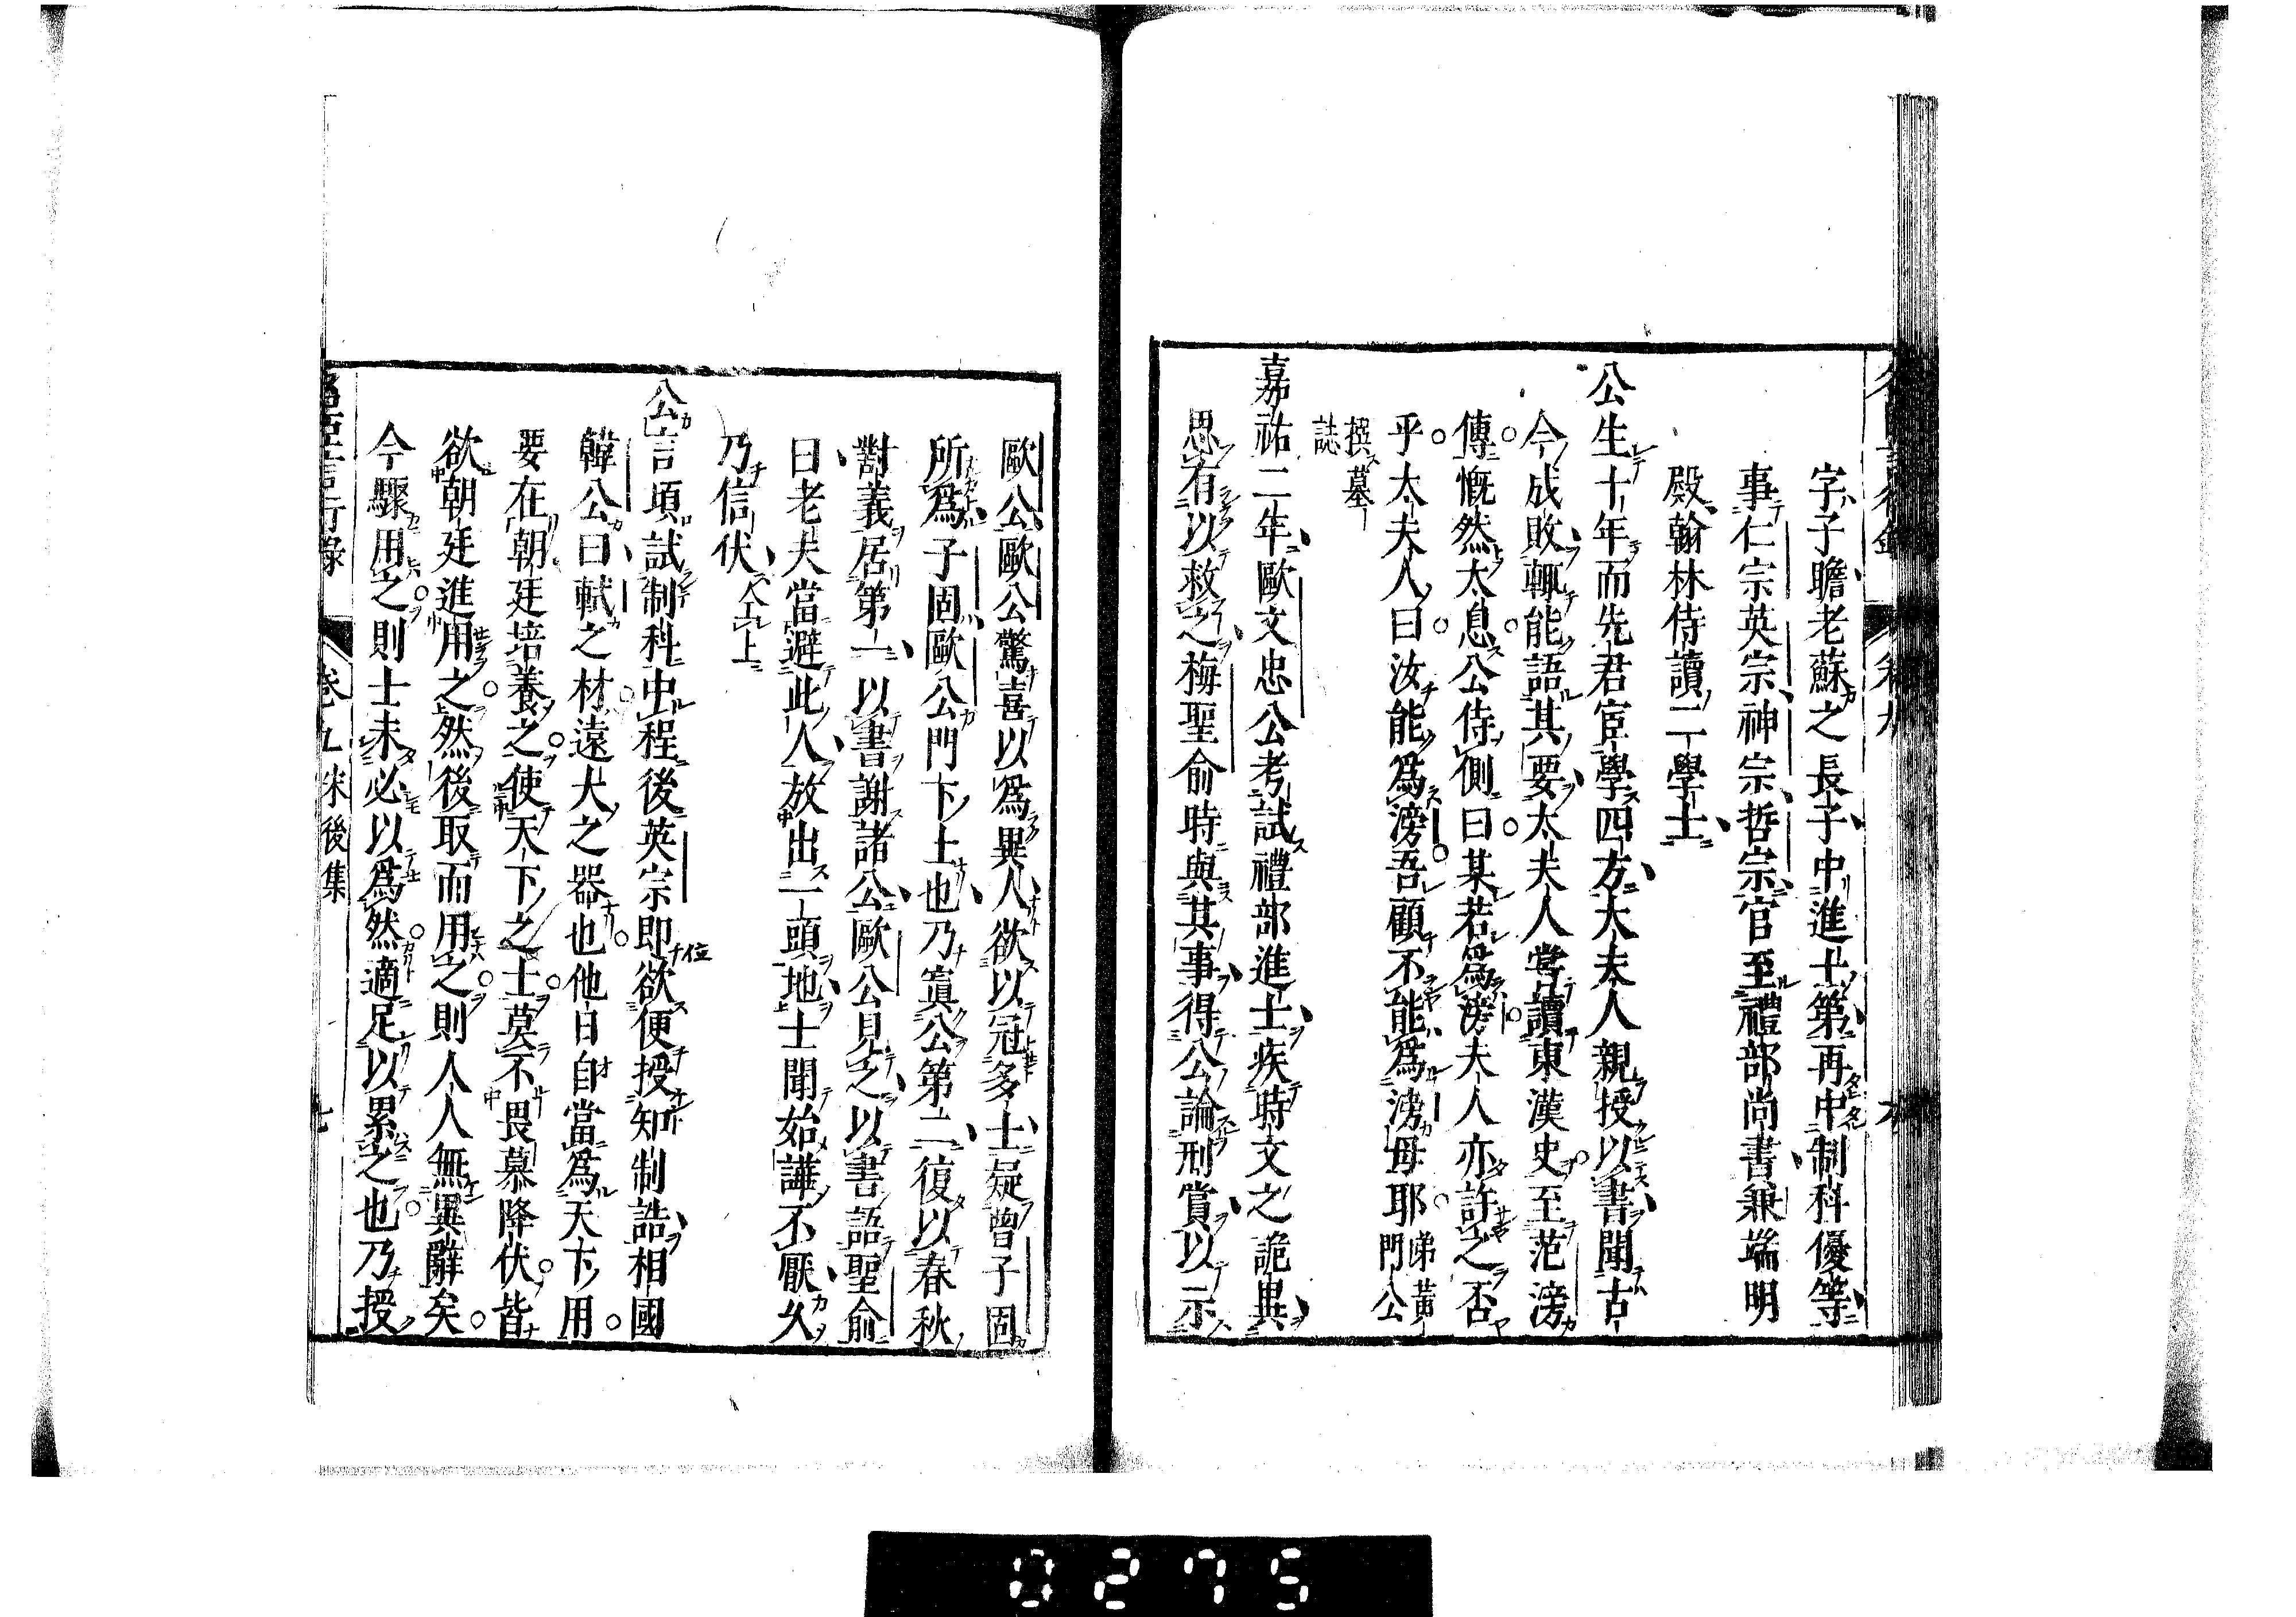 字子瞻老蘇之長子中進士第再中制科優等
事仁宗英宗神宗哲宗官至禮部尚書兼端明
殿翰林侍讀二學士
公生十年而先君宦學四方大夫人親授以書聞古
今成敗輙能語其要太夫人嘗讀東漢史至范滂
傳慨然太息公侍側曰某若爲滂夫人亦許之否
乎太夫人曰汝能爲滂吾顧不能爲滂母耶
門公
撰墓
誌
嘉祐二年歐文忠公考試禮部進士疾時文之詭異
思有以救之梅聖俞時與其事得公論刑賞以示
歐公歐公驚喜以爲異人欲以冠多士疑曾子固
所爲子固歐公門下士也乃寘公第二復以春秋
對義居第一以書謝諸公歐公見之以書語聖俞
曰老夫當避此人放出一頭地士聞始譁不厭久
乃信伏仝上
公言頃試制科中程後英宗即位欲便授知制誥相國
韓公曰軾之材遠大之器也他日自當為天下用
要在朝廷培養之使天下之士莫不畏慕降伏皆
欲朝廷進用之然後取而用之則人人無異辭矣
今驟用之則士未必以爲然適足以累之也乃授
名臣言行錄 卷九 宋後集 七